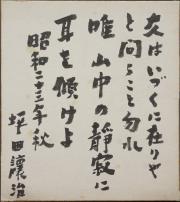 友はいづくに在りや
と問うこと勿れ
唯山中の静寂に
耳を傾けよ
昭和二十三年秋
坪田譲治